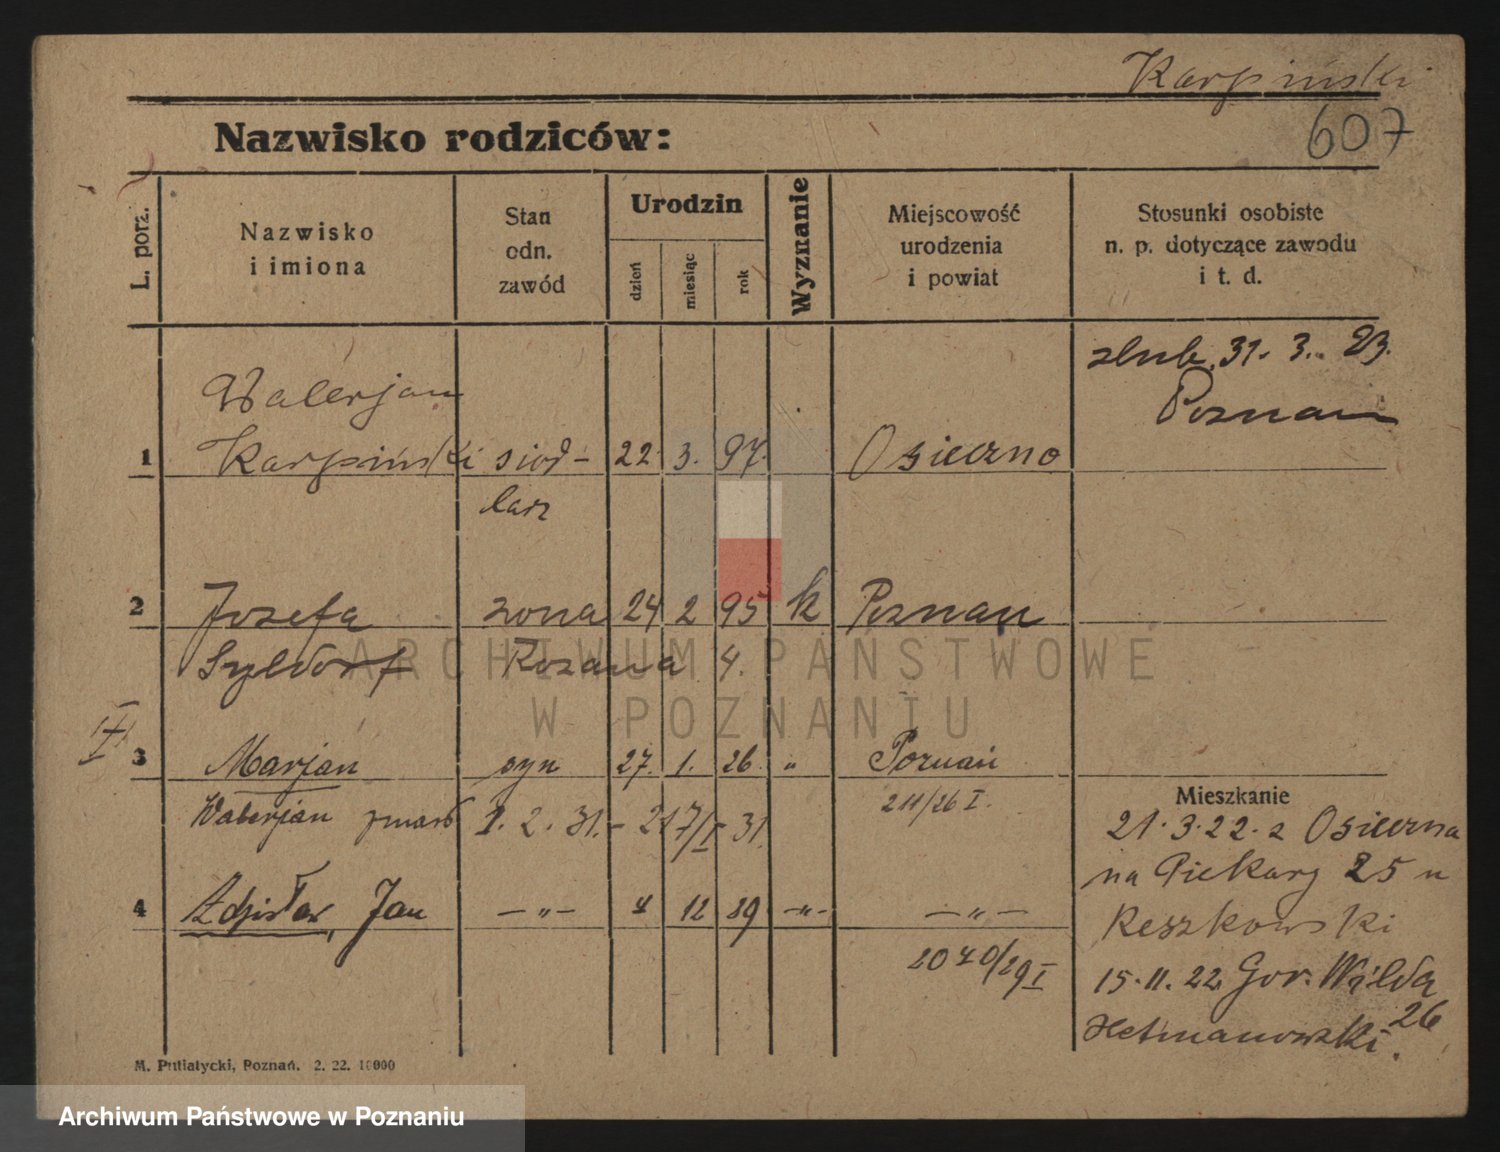 Karpiński
607
Nazwisko rodziców:
L. porz.
Nazwisko
i imiona
Stan
odn.
zawód
Urodzin
dzień
miesiąc
rok
Wyznanie
Miejscowość
urodzenia
i powiat
Stosunki osobiste
n. p. dotyczące zawodu
i t. d.
ślub. 31. 3. 23.
Poznan
Walerjan
1 Karpiński siod- 22. 3. 97. Osieczno
larz
2 Jozefa zona 24 2 95 k Poznan
Szeldorf Rozana 4.
3 Marjan syn 27. 1. 26. " Poznań
211/26 I.
Walerjan zmarł 1. 2. 31. - 217/I - 31.
4 Zdzisław, Jan — " — 4 12 29 — " — — " —
2040/29 I
Mieszkanie
21. 3. 22. z Osieczna
na Piekary 25 u
Reszkowski
15. 11. 22. Gor. Wilda
26
Hetmanowski.
M. Putiatycki, Poznań. 2. 22. 10000
ARCHIWUM PAŃSTWOWE
W POZNANIU
Archiwum Państwowe w Poznaniu